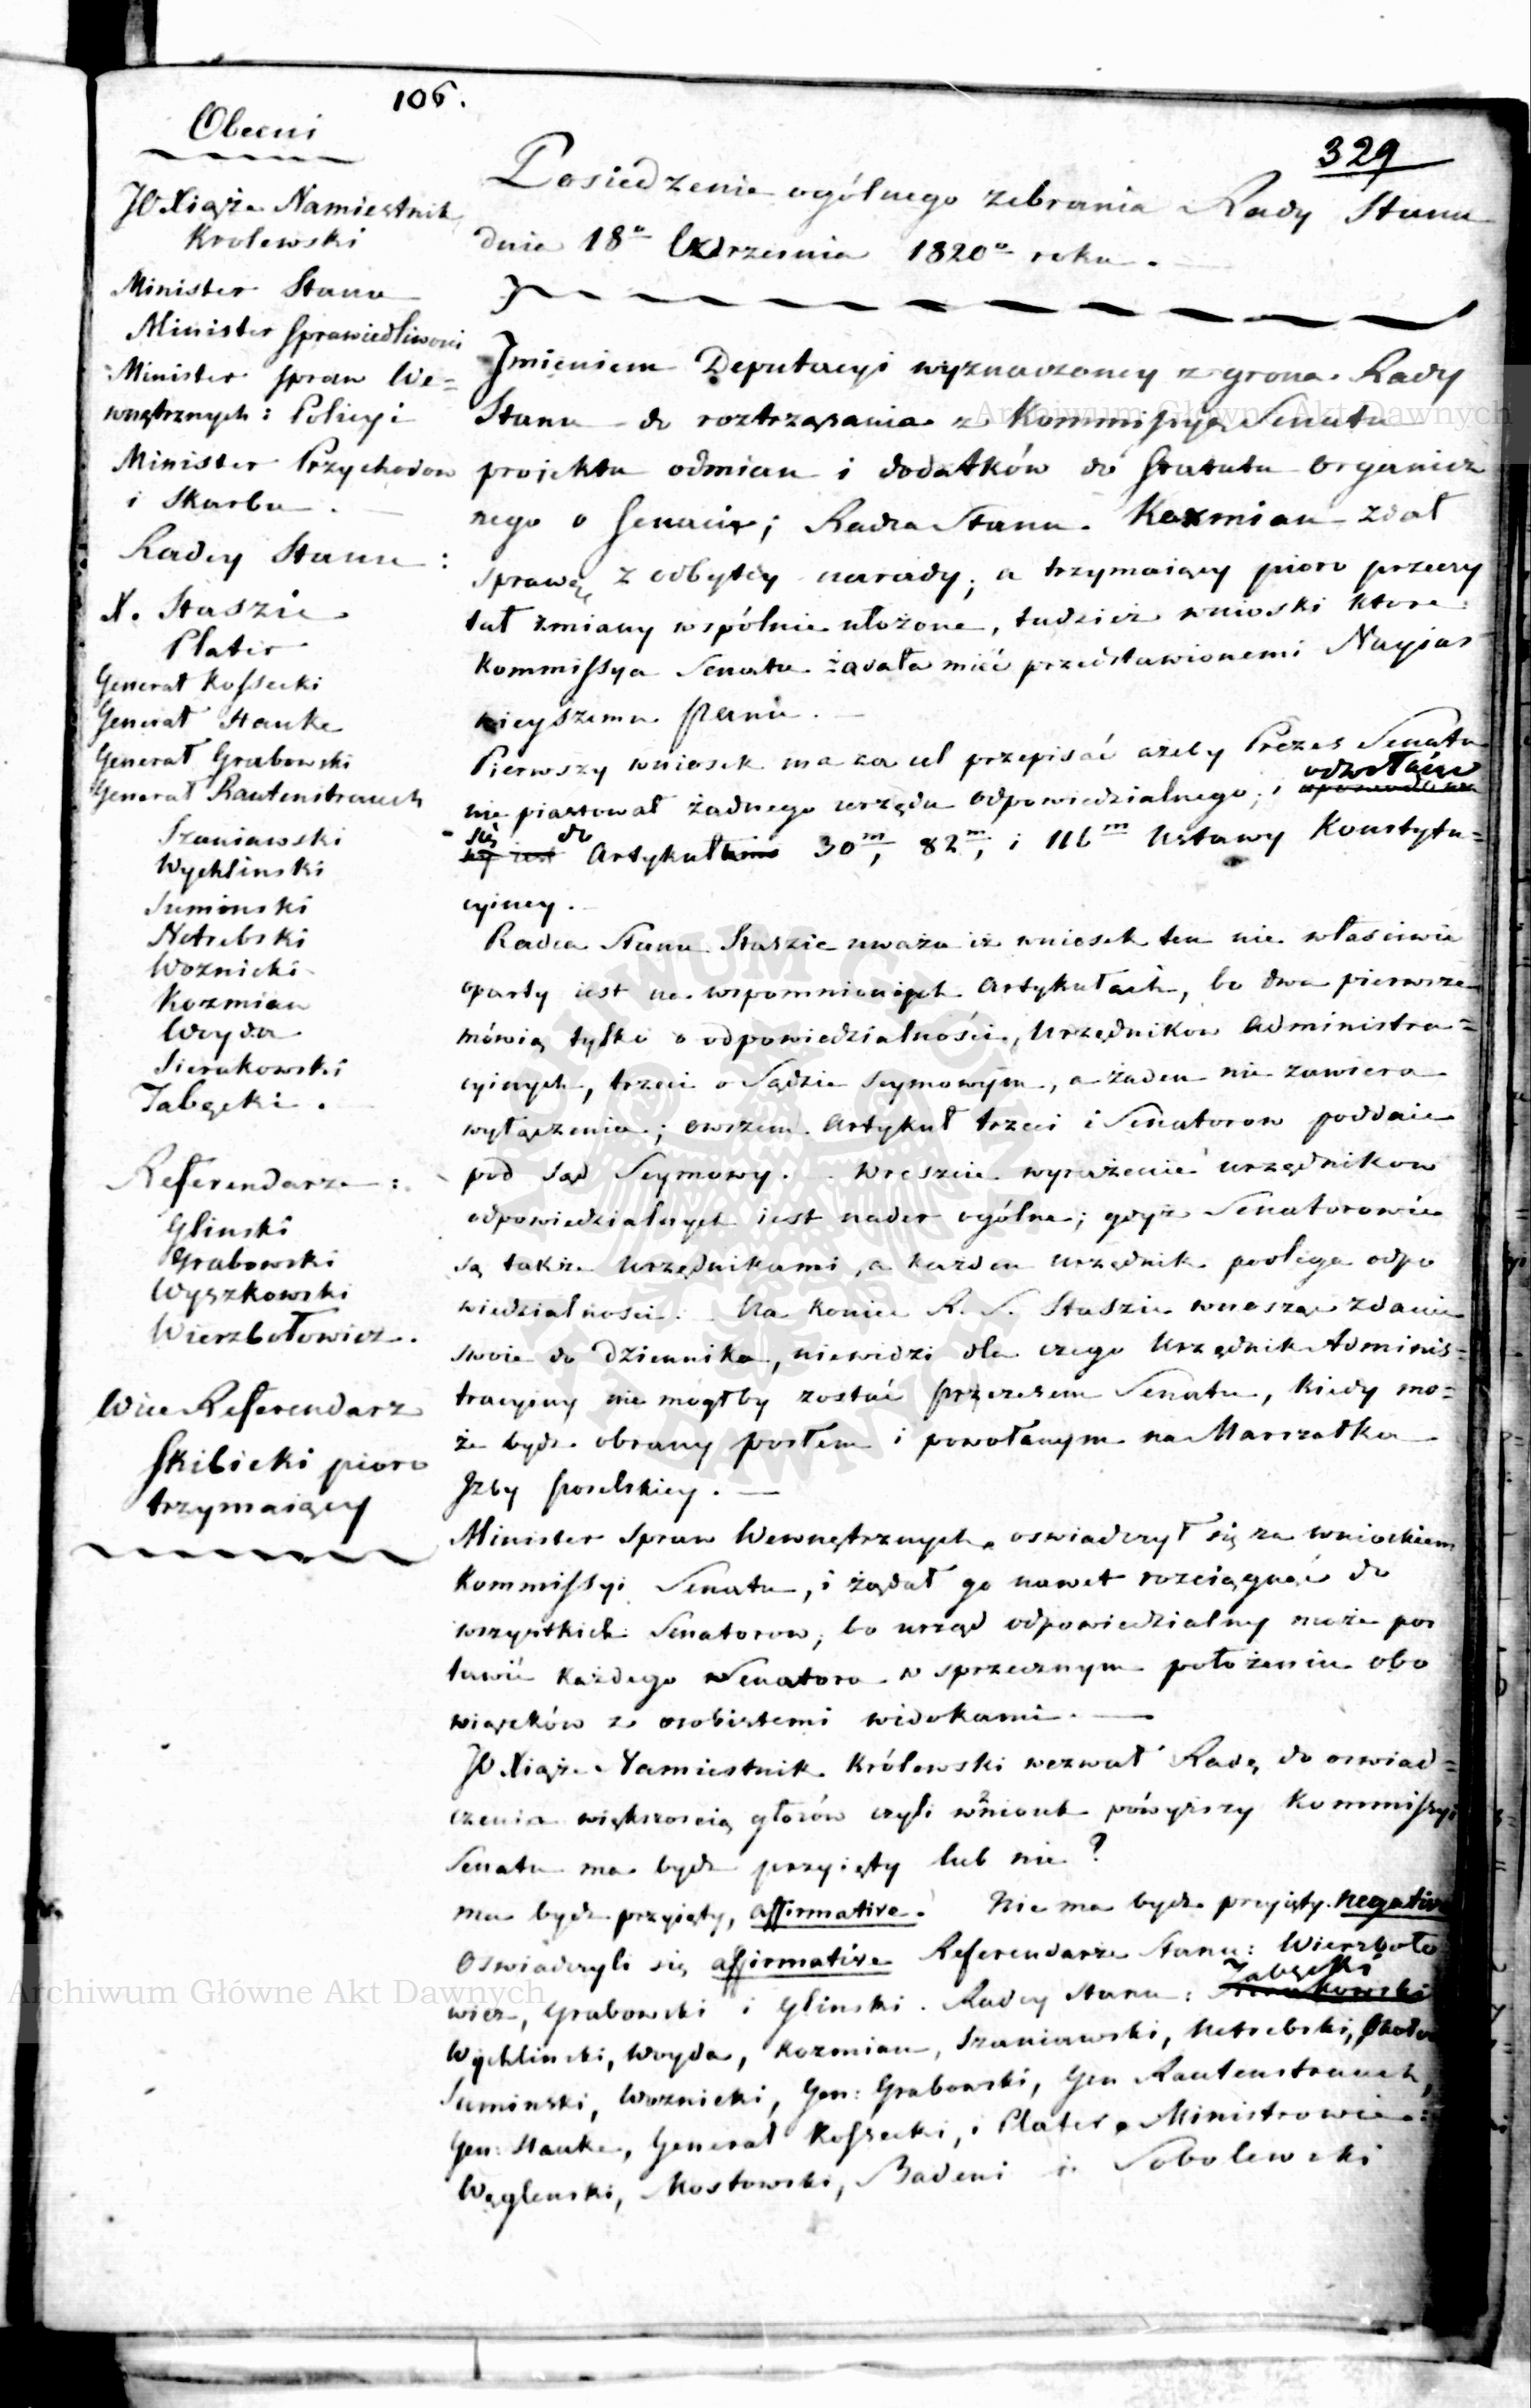 106.
329
Obecni
JO Xiąże Namiestnik
Krolewski
Minister Stanu
Minister Sprawiedliwosci
Minister Spraw We=
wnętrznych i Policyi
Minister Przychodow
i Skarbu.
Radcy Stanu:
X. Staszic
Plater
Generał Kossecki
Generał Hauke
Generał Grabowski
Generał Rautenstrauch
Szaniawski
Wychlinski
Suminski
Netrebski
Woznicki
Kozmian
Woyda
Sierakowski
Zabęcki.
Referendarze:
Glinski
Grabowski
Wyszkowski
Wierzbołowicz.
Wice Referendarz
Skibicki pioro
trzymaiący
Posiedzenie ogólnego zebrania Rady Stanu
dnia 18o Września 1820o roku.
Jmieniem Deputacyi wyznaczoney z grona Rady
Stanu do roztrząsania z Kommissyą Senatu
projektu odmian i dodatków do Statutu organicz
nego o Senacie; Radca Stanu Kozmian zdał
sprawę z odbytey narady; a trzymaiący pioro przeczy
tał zmiany wspólnie ułożone, tudzież wnioski ktore
Kommissya Senatu żądała mieć przedstawionemi Nayias
nieyszemu Panu.
Pierwszy wniosek ma za cel przepisać ażeby Prezes Senatu
nie piastował żadnego urzędu odpowiedzialnego; i odwołuie
się do Artykułów 30m, 82m, i 116m Ustawy Konstytu=
cyiney.
Radca Stanu Staszic uważa iż wniosek ten nie właściwie
oparty iest na wspomnionych Artykułach, bo dwa pierwsze
mówią tylko o odpowiedzialności Urzędnikow Administra=
cyinych, trzeci o Sądzie Seymowym, a żaden nie zawiera
wyłączenia; owszem Artykuł trzeci i Senatorow poddaie
pod Sąd Seymowy. Wreszcie wyrażenie urzędnikow
odpowiedzialnych iest nader ogólne; gdyż Senatorowie
są także Urzędnikami, a każden urzędnik podlega odpo
wiedzialności. Na koniec R. S. Staszic wnosząc zdanie
swoie do Dziennika, niewidzi dla czego Urzędnik Adminis=
tracyiny nie mógłby zostać Prezesem Senatu, kiedy mo=
że bydź obrany posłem i powołanym na Marszałka
Jzby Poselskiey.
Minister Spraw Wewnętrznych oswiadczył się za wnioskiem
Kommissyi Senatu, i żądał go nawet rozciągnąć do
wszystkich Senatorow, bo urząd odpowiedzialny może pos
tawić każdego Senatora w sprzecznym położeniu obo
wiązków z osobistemi widokami.
JO Xiąże Namiestnik Królewski wezwał Radę do oswiad=
czenia większoscią głosów czyli wniosek powyższy Kommissyi
Senatu ma bydź przyięty lub nie?
ma bydź przyięty, affirmative. Nie ma bydź przyięty. negative
Oswiadczyli się affirmative Referendarze Stanu: Wierzboło
wicz, Grabowski i Glinski. Radcy Stanu: Zabęcki
Wychlinski, Woyda, Kozmian, Szaniawski, Netrebski,
Suminski, Woznicki, Gen: Grabowski, Gen Rautenstrauch,
Gen: Hauke, Generał Kossecki, i Plater. Ministrowie:
Węglenski, Mostowski, Badeni i Sobolewski
Archiwum Główne Akt Dawnych
Archiwum Główne Akt Dawnych
ARCHIWUM GŁÓWNE
AKT DAWNYCH